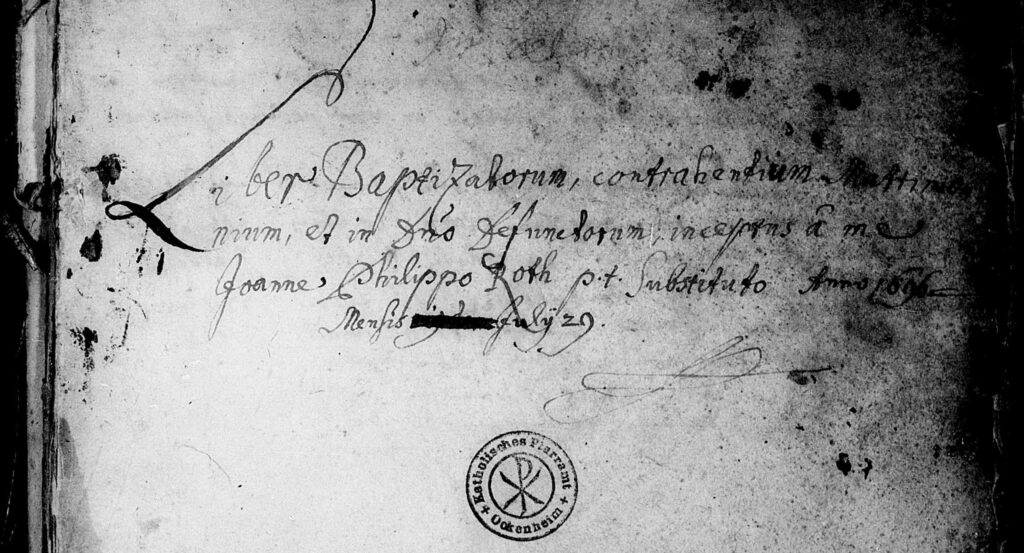 Liber Baptizatorum, contrahentium Matrimo
nium, et in Dno Defunctorum, inceptus â me
Joanne Philippo Roth p.t. Substituto Anno 1696
Mensis July 29.
Katholisches Pfarramt
Ockenheim